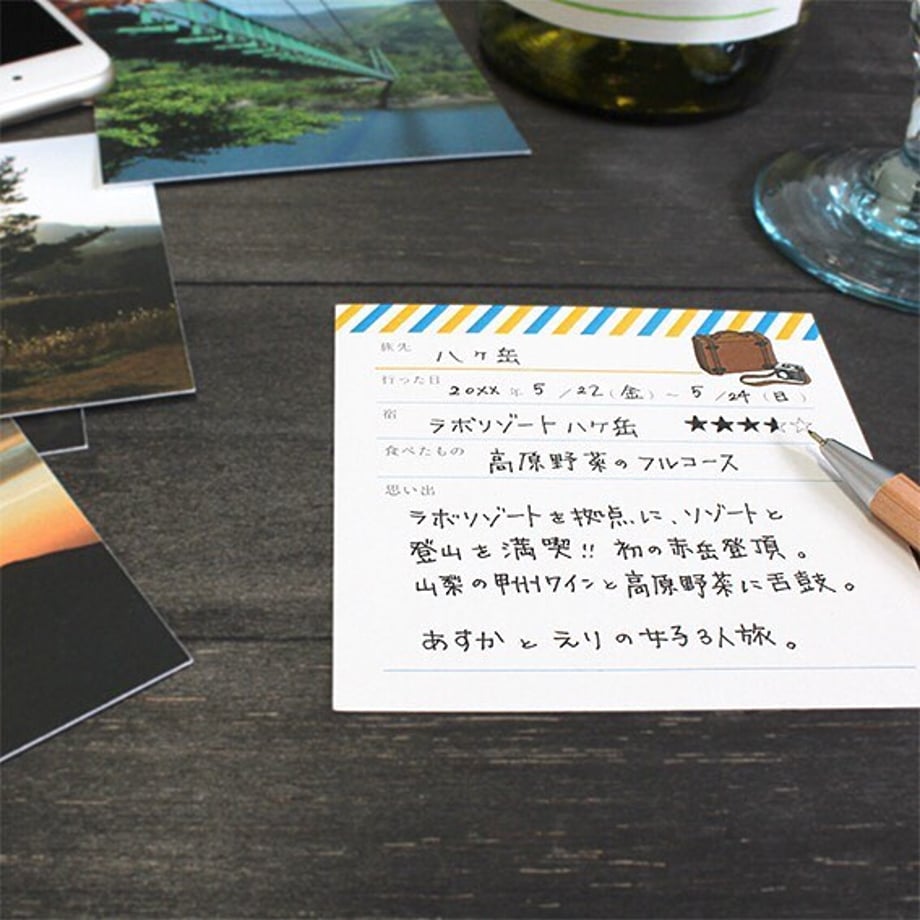 旅先 八ヶ岳
行った日 20XX 年 5 / 22 (金) ~ 5 / 24 (日)
宿 ラボリゾート 八ヶ岳 ★★★★☆
食べたもの 高原野菜のフルコース
思い出
ラボリゾートを拠点に、リゾートと
登山を満喫!! 初の赤岳登頂。
山梨の甲州ワインと高原野菜に舌鼓。
あすかとえりの女子3人旅。